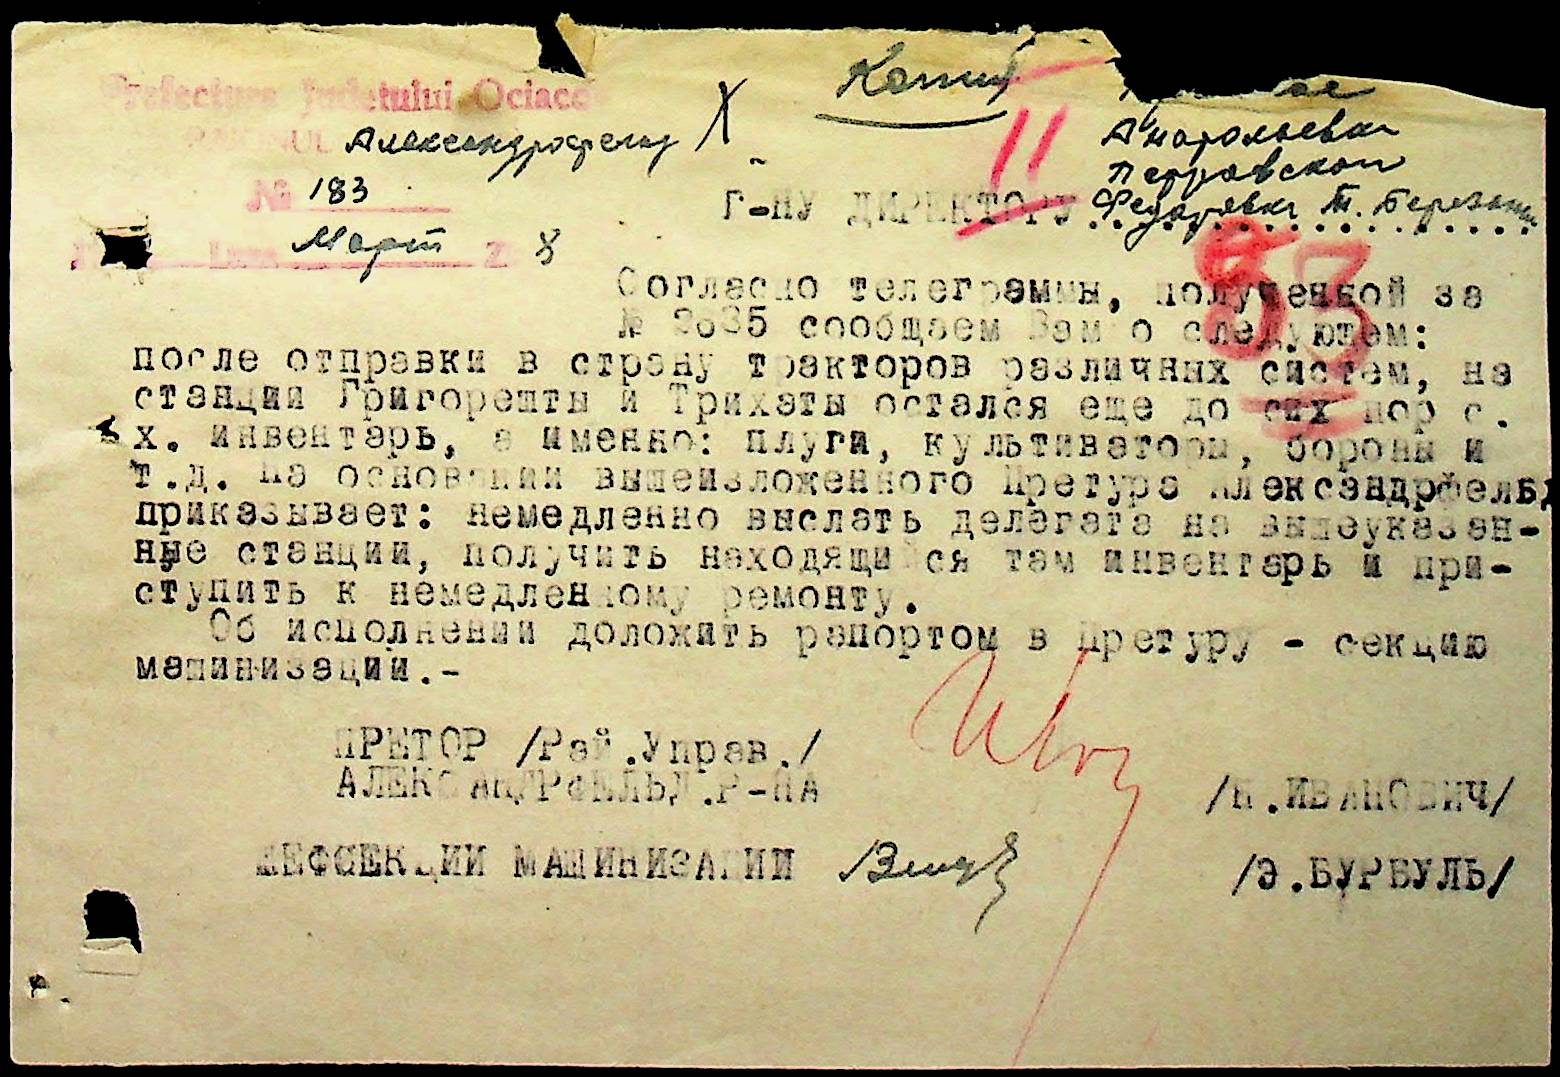 Prefectura Județului Ociacov
RAIONUL Александрфельд
№ 183
Luna Март Z 8
Копия
11
Анатольевка
Петровской
Федоровка Т. Березани
Г-НУ ДИРЕКТОРУ
53
Согласно телеграммы, полученной за
№ 2635 сообщаем Вам о следующем:
после отправки в страну тракторов различных систем, на
станции Григорешты и Трихаты остался еще до сих пор с.
х. инвентарь, а именно: плуги, культиваторы, бороны и
т.д. На основании вышеизложенного Претура Александрфельд
приказывает: немедленно выслать делегата на вышеуказан-
ные станции, получить находящийся там инвентарь и при-
ступить к немедленному ремонту.
Об исполнении доложить рапортом в Претуру - секцию
машинизации.-
ПРЕТОР /Рай.Управ./
АЛЕКСАНДРФЕЛЬД.Р-НА
/Н.ИВАНОВИЧ/
ШЕФСЕКЦИИ МАШИНИЗАЦИИ
/Э.БУРБУЛЬ/